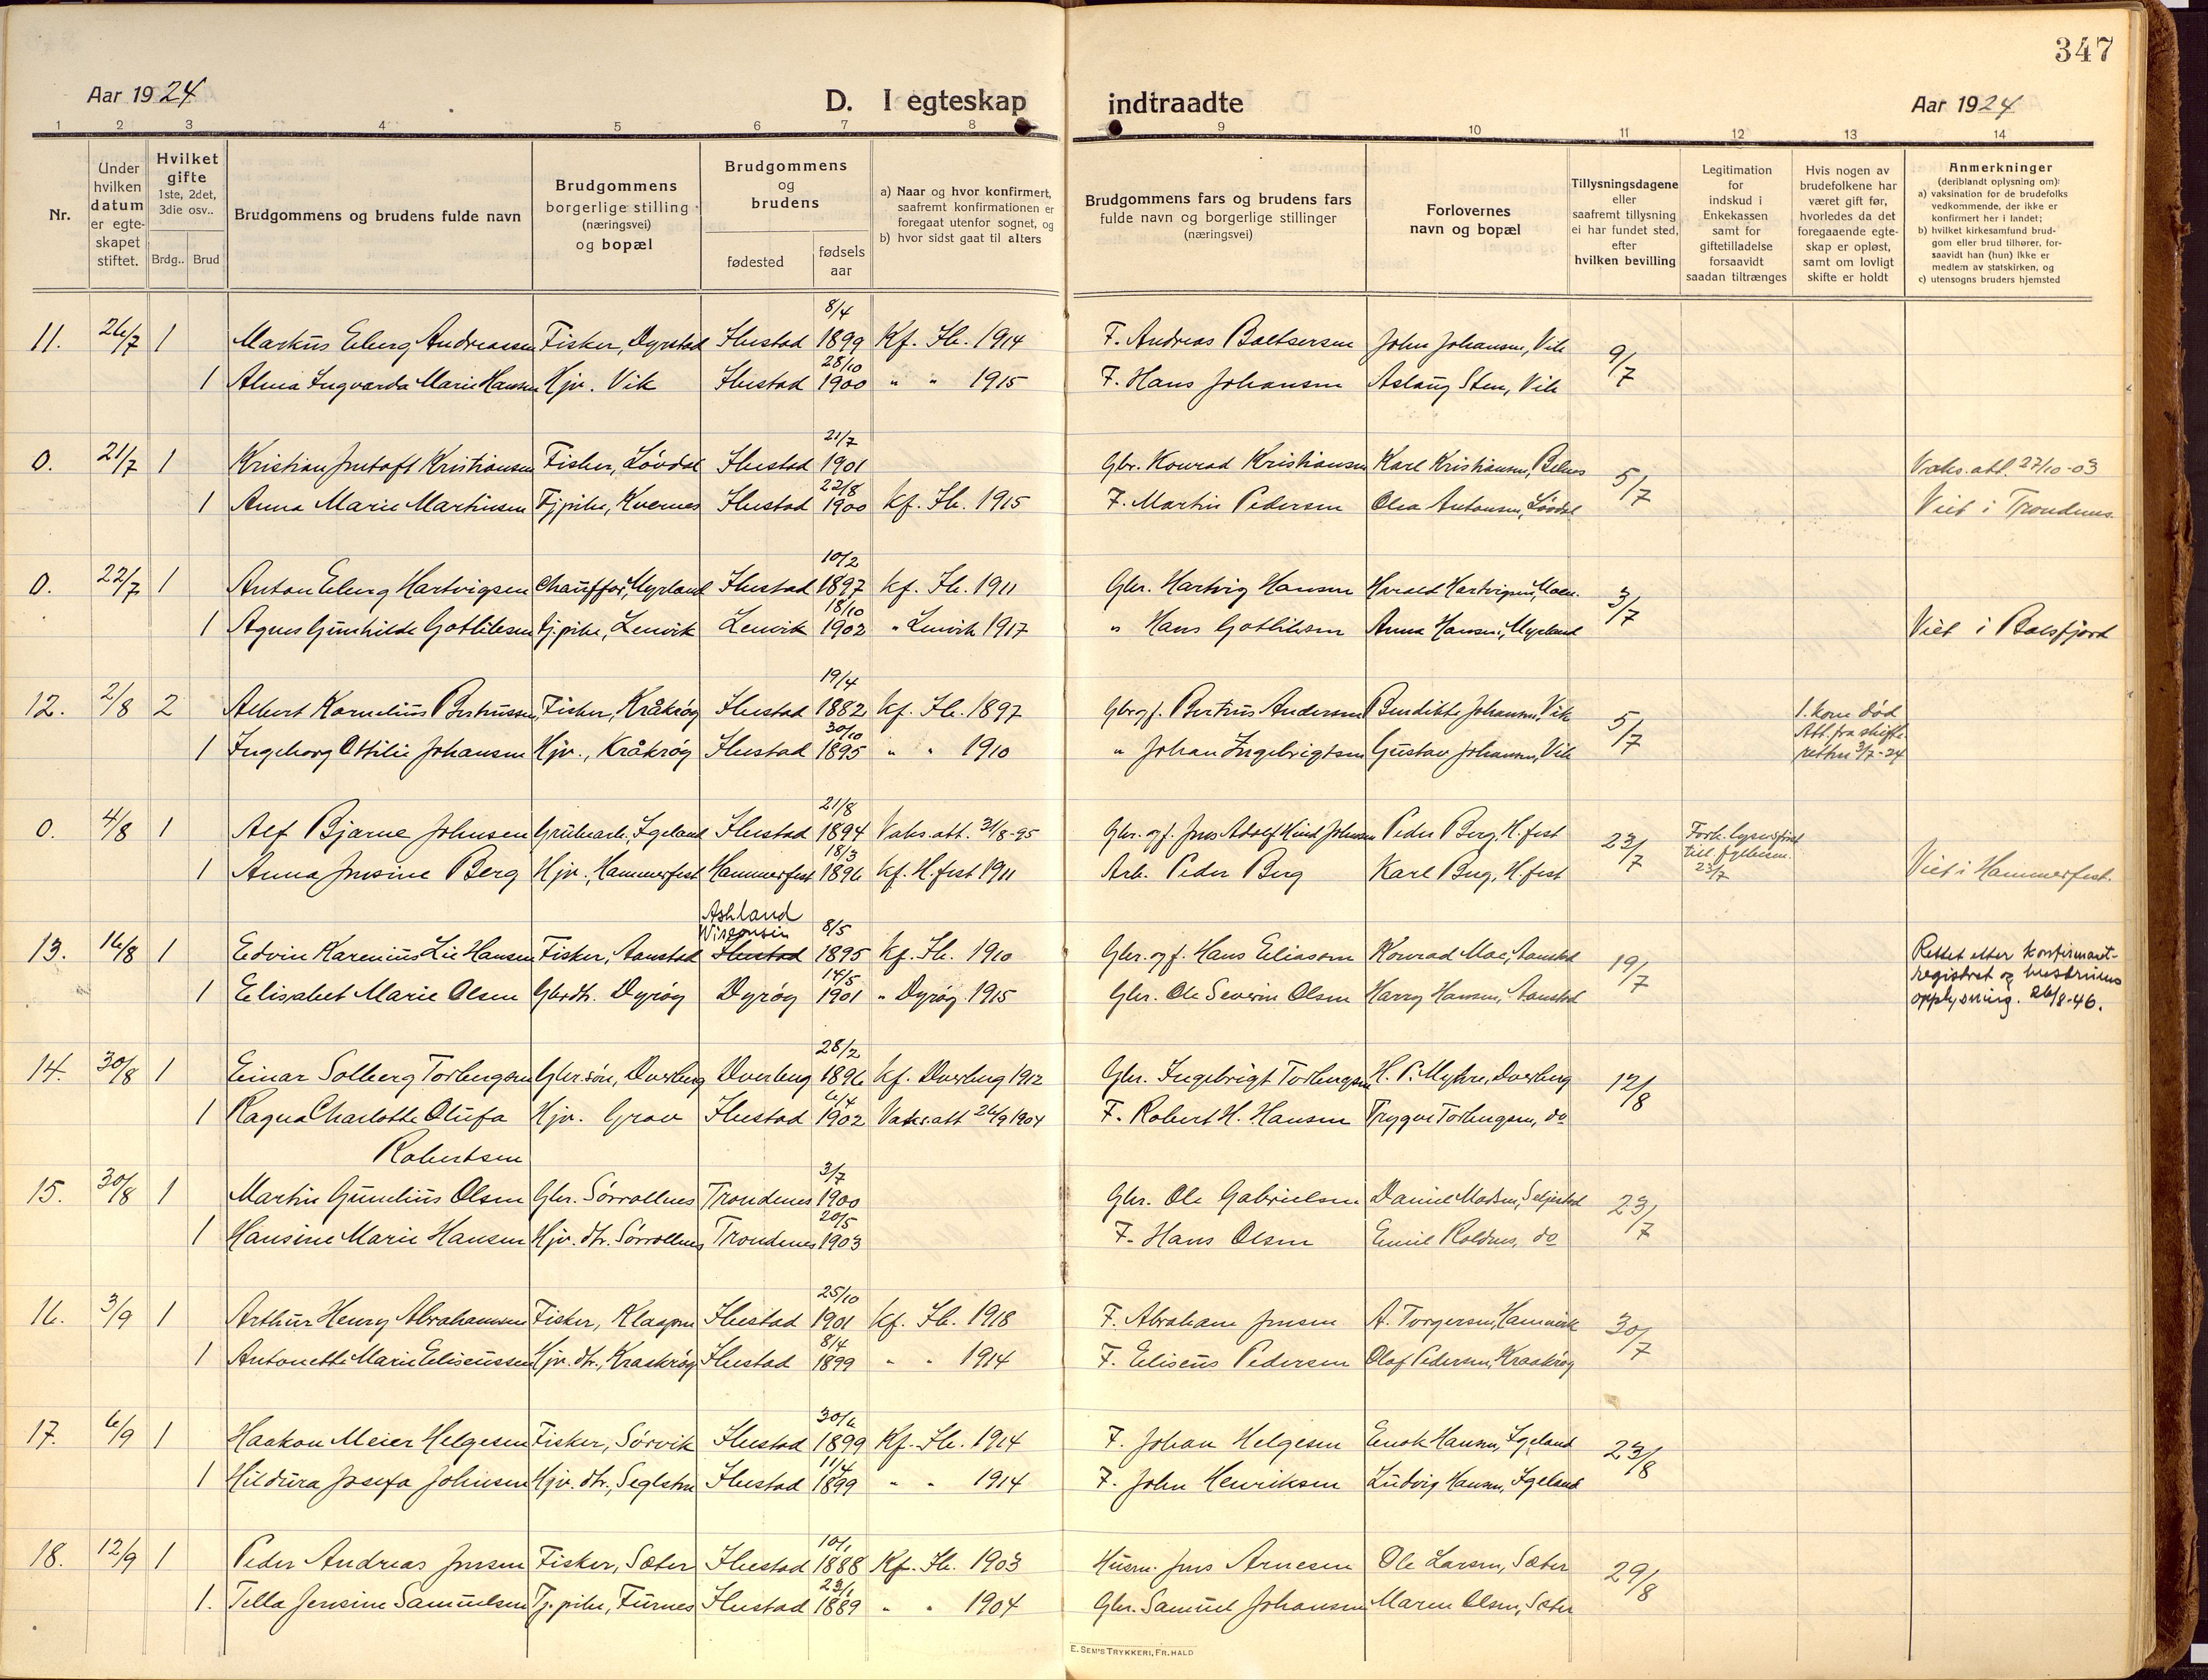 347
Aar 1924 D. I egteskap indtraadte Aar 1924
1 2 3 4 5 6 7 8 9 10 11 12 13 14
Nr.
Under hvilken datum er egteskapet stiftet.
Hvilket gifte 1ste, 2det, 3die osv..
Brdg.. Brud
Brudgommens og brudens fulde navn
Brudgommens borgerlige stilling (næringsvei) og bopæl
Brudgommens og brudens
fødested fødsels aar
a) Naar og hvor konfirmert, saafremt konfirmationen er foregaat utenfor sognet, og
b) hvor sidst gaat til alters
Brudgommens fars og brudens fars fulde navn og borgerlige stillinger (næringsvei)
Forlovernes navn og bopæl
Tillysningsdagene eller saafremt tillysning ei har fundet sted, efter hvilken bevilling
Legitimation for indskud i Enkekassen samt for giftetilladelse forsaavidt saadan tiltrænges
Hvis nogen av brudefolkene har været gift før, hvorledes da det foregaaende egteskap er opløst, samt om lovligt skifte er holdt
Anmerkninger (deriblandt oplysning om):
a) vaksination for de brudefolks vedkommende, der ikke er konfirmert her i landet;
b) hvilket kirkesamfund brudgom eller brud tilhører, forsaavidt han (hun) ikke er medlem av statskirken, og
c) utensogns bruders hjemsted
11. 26/7 1 Markus Elberg Andreassen Fisker, Dyrstad Ibestad 8/4 1899 Kf. Ib. 1914 F. Andreas Baltsersen John Johansen, Vik 9/7
1 Alma Ingvarda Marie Hansen Hjv. Vik Ibestad 28/10 1900 " " 1915 F. Hans Johansen Aslaug Sten, Vik
0. 21/7 1 Kristian Justoft Kristiansen Fisker, Løvdal Ibestad 21/7 1901 Gbr. Konrad Kristiansen Karl Kristiansen, 5/7 Vaks.att. 27/10-03
1 Anna Marie Martinsen Tj.pike, Kvernes Ibestad 22/8 1900 Kf. Ib. 1915 F. Martin Pedersen Olea Antonsen, Løvdal Viet i Trondenes
0. 22/7 1 Anton Elberg Hartvigsen Chauffør, Myrland Ibestad 10/2 1897 Kf. Ib. 1911 Gbr. Hartvig Hansen Harald Hartvigsen, Moen. 3/7
1 Agnes Gunhilde Gotlibsen Tj.pike, Lenvik Lenvik 18/10 1902 " Lenvik 1917 " Hans Gotlibsen Anna Hansen, Myrland Viet i Balsfjord
12. 2/8 2 Albert Kornelius Bertiussen, Fisker, Kråkrøg Ibestad 19/4 1882 Kf. Ib. 1897 Gbr. og f. Bertius Andersen Bendikte Johansen, Vik 5/7 1. kone død
1 Ingeborg Otilie Johansen Hjv., Kråkrøg Ibestad 30/10 1895 " " 1910 " Johan Ingebrigtsen Gustav Johansen, Vik Att. fra skifteretten 3/7-24
0. 4/8 1 Alf Bjarne Johnsen Grubearb. Igeland Ibestad 21/8 1894 Vaks.att. 31/8-95 Gbr. og f. Jens Adolf Hind Johnsen Peder Berg, H.fest 23/7
1 Anna Jensine Berg Hjv., Hammerfest Hammerfest 18/3 1896 Kf. H.fest 1911 Arb. Peder Berg Karl Berg, H.fest Viet i Hammerfest.
Ashland Wisconsin
13. 16/8 1 Edvin Karenius Lie Hansen Fisker, Aanstad Ibestad 8/5 1895 Kf. Ib. 1910 Gbr. og f. Hans Eliassen Konrad Moe, Aanstad 19/7 Rettet etter konfirmant-
registret og hustruens
1 Elisabet Marie Olsen Gbrdt. Dyrøy Dyrøy 14/5 1901 " Dyrøy 1915 Gbr. Ole Severin Olsen Harry Hansen, Aanstad opplysning. 26/8-46.
14. 30/8 1 Einar Solberg Torbergsen Gbr.søn, Dverberg Dverberg 28/2 1896 Kf. Dverberg 1912 Gbr. Ingebrigt Torbergsen H. P. Myhre, Dverberg 12/8
1 Ragna Charlotte Olufa Hjv. Grov Ibestad 6/4 1902 Vaks.att 26/9 1904 F. Robert H. Hansen Trygve Torbergsen, do
Robertsen
15. 30/8 1 Martin Gunelius Olsen Gbr. Sørrollnes Trondenes 3/7 1900 Gbr. Ole Gabrielsen Daniel Madsen, Seljestad 23/7
1 Hansine Marie Hansen Hjv. dtr. Sørrollnes Trondenes 20/5 1903 F. Hans Olsen Emil Roldnes, do
16. 3/9 1 Arthur Henry Abrahamsen Fisker, Klaapen Ibestad 25/10 1901 Kf. Ib. 1918 F. Abraham Jensen A. Torgersen, Hamnvik 30/7
1 Antonette Marie Eliseussen Hjv. dtr., Kraakrøg Ibestad 8/4 1899 " " 1914 F. Eliseus Pedersen Olaf Pedersen, Kraakrøg
17. 6/9 1 Haakon Meier Helgesen Fisker, Sørvik Ibestad 30/6 1899 Kf. Ib. 1914 F. Johan Helgesen Enok Hansen, Igeland 23/8
1 Hildura Josefa Johnsen Hjv. dtr., Seglsten Ibestad 11/4 1899 " " 1914 F. John Henriksen Ludvig Hansen, Igeland
18. 12/9 1 Peder Andreas Jensen Fisker, Sæter Ibestad 10/1 1888 Kf. Ib. 1903 Husm. Jens Arnesen Ole Larsen, Sæter 29/8
1. Tella Jensine Samuelsen Tj. pike, Furnes Ibestad 23/1 1889 " " 1904 Gbr. Samuel Johansen Maren Olsen, Sæter
E. SEM'S TRYKKERI, FR.HALD